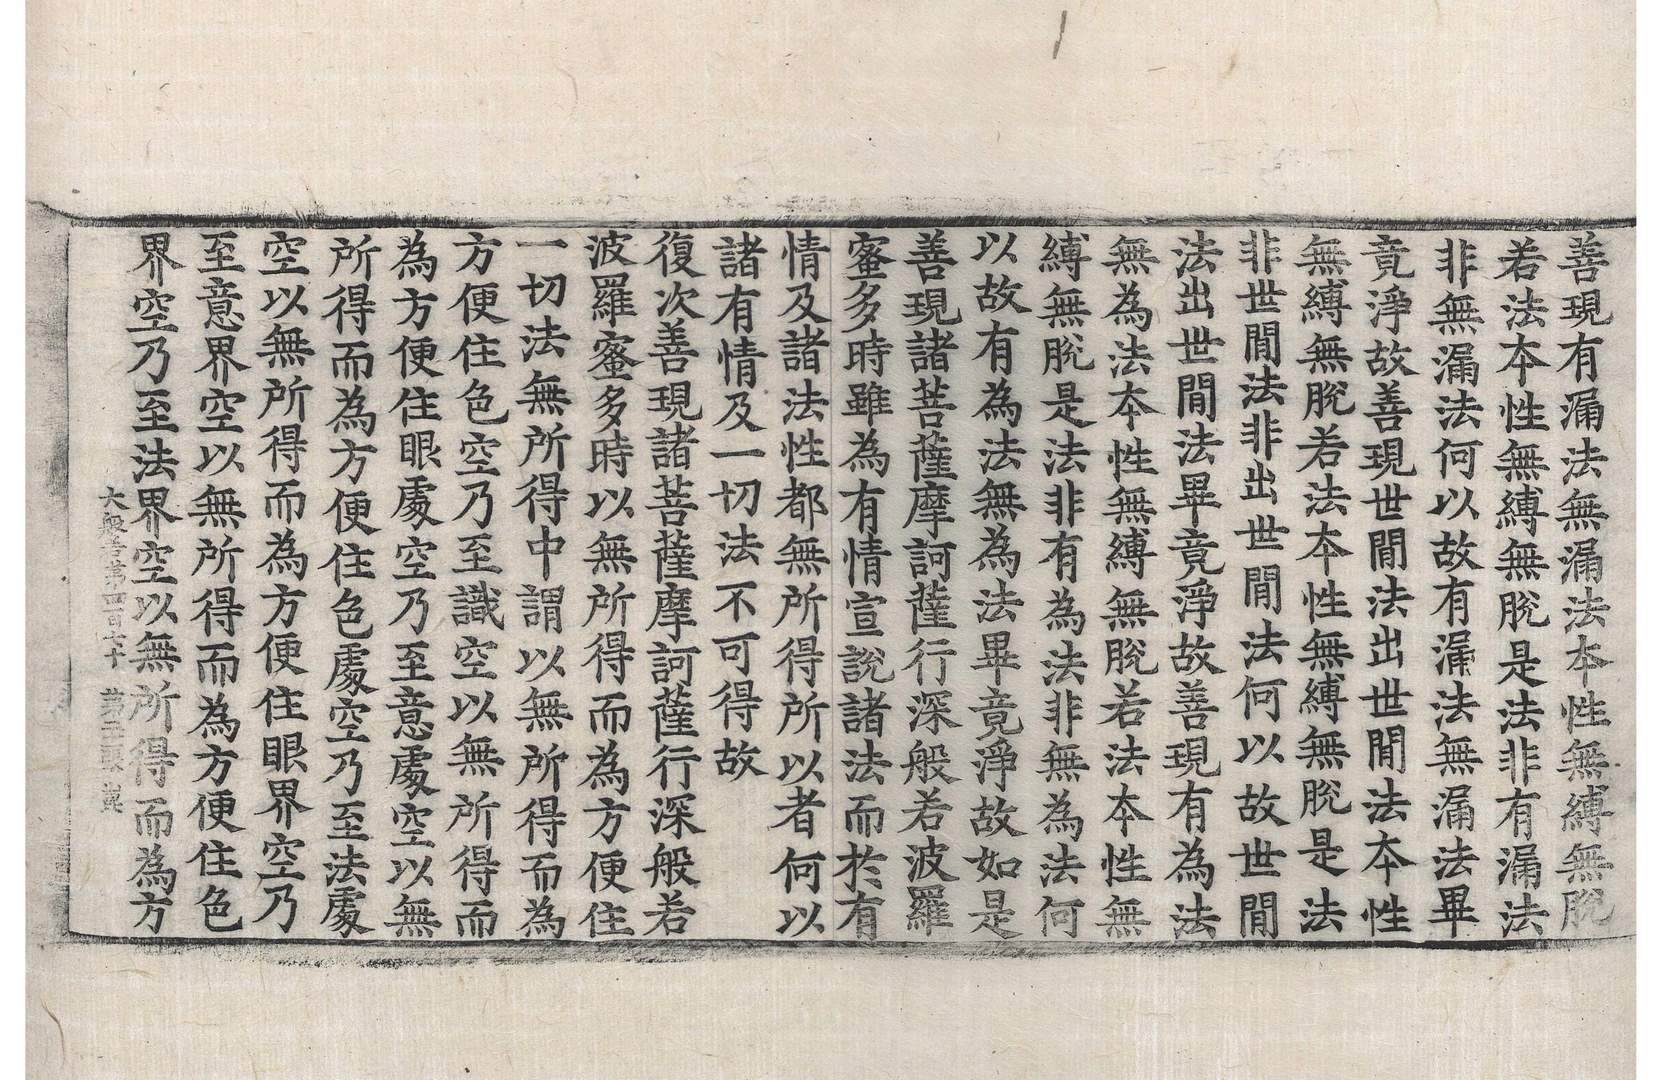 善現有漏法無漏法本性無縛無脫
若法本性無縛無脫是法非有漏法
非無漏法何以故有漏法無漏法畢
竟淨故善現世間法出世間法本性
無縛無脫若法本性無縛無脫是法
非世間法非出世間法何以故世間
法出世間法畢竟淨故善現有為法
無為法本性無縛無脫若法本性無
縛無脫是法非有為法非無為法何
以故有為法無為法畢竟淨故如是
善現諸菩薩摩訶薩行深般若波羅
蜜多時雖為有情宣說諸法而於有
情及諸法性都無所得所以者何以
諸有情及一切法不可得故
復次善現諸菩薩摩訶薩行深般若
波羅蜜多時以無所得而為方便住
一切法無所得中謂以無所得而為
方便住色空乃至識空以無所得而
為方便住眼處空乃至意處空以無
所得而為方便住色處空乃至法處
空以無所得而為方便住眼界空乃
至意界空以無所得而為方便住色
界空乃至法界空以無所得而為方
大般若第四百六十 第三張 崗